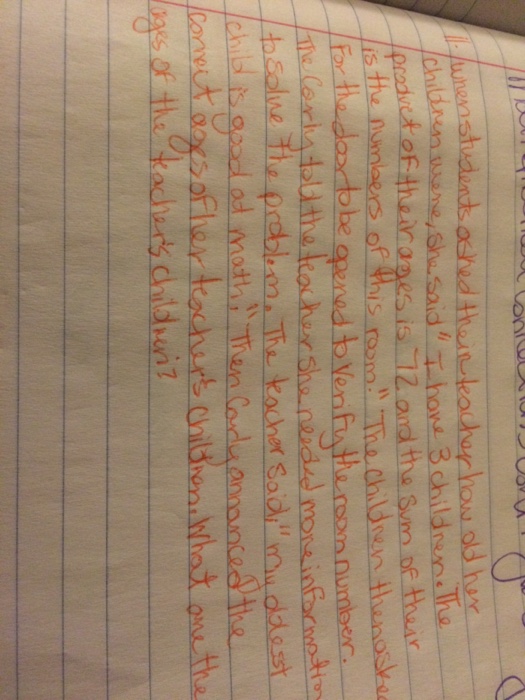 11. When students asked their teacher how old her
children were, she said "I have 3 children. The
product of their ages is 72 and the sum of their
is the numbers of this room." The children then asked
For the door to be opened to verify the room number.
The Carly told the teacher she needed more information
to solve the problem. The teacher said, "my oldest
child is good at math," Then Carly announced the
correct ages of her teacher's children. What are the
ages of the teacher's children?